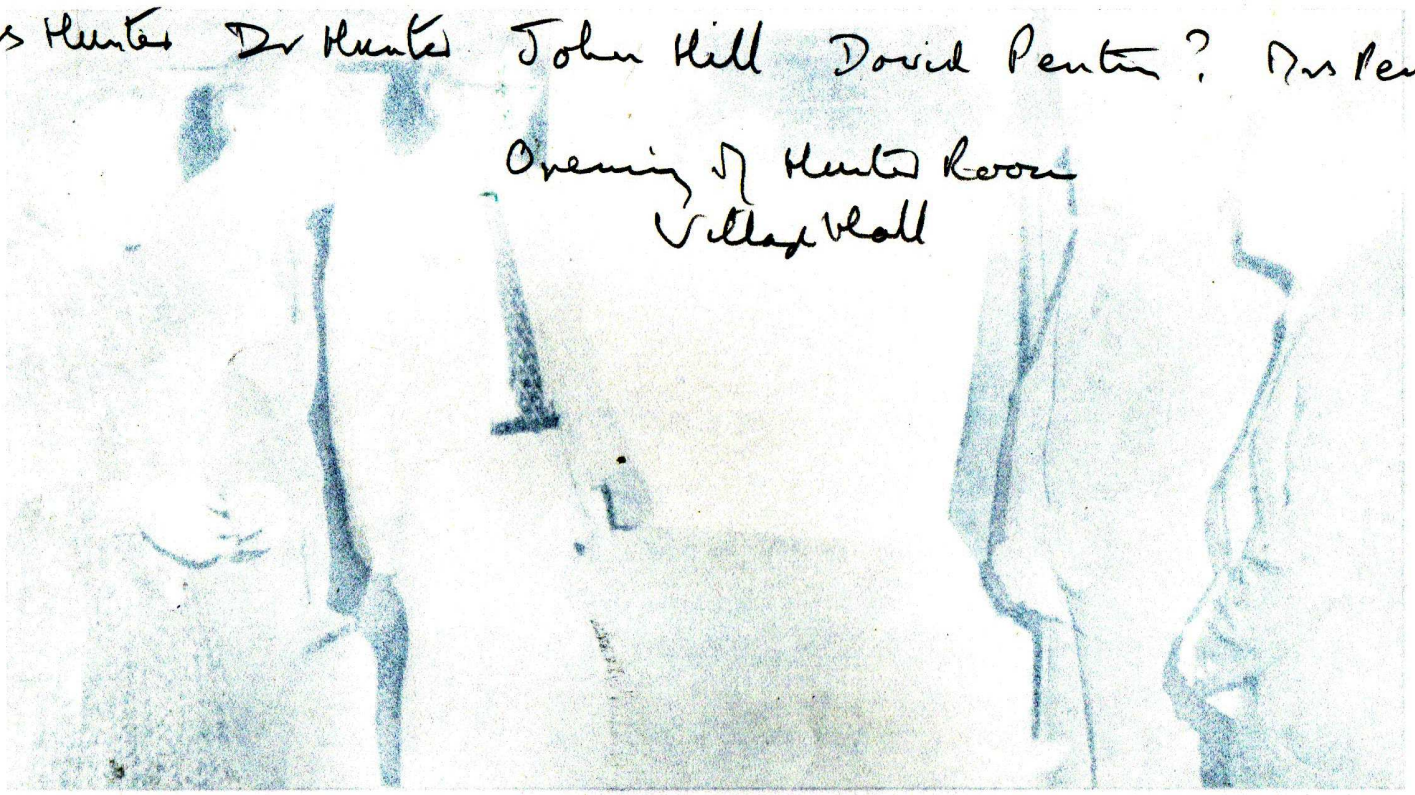 s Hunter Dr Hunter John Hill David Penton? Mrs Pen
Opening of Hunter Room
Village Hall